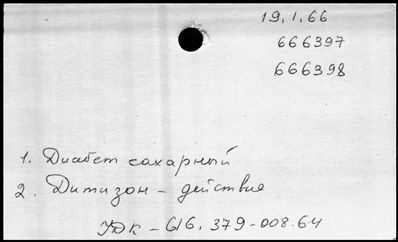 19.1.66
666397
666398
1. Диабет сахарный
2. Дитизон - действие
УДК - 616.379-008.64